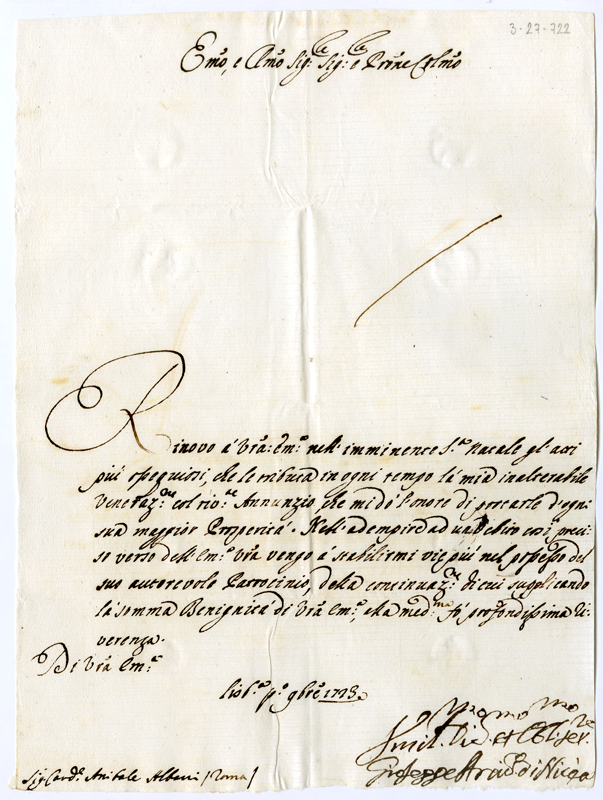 3-27-722
Emo, e Rmo Sig:re Sig:re e Prone Colmo
Rinovo à Vrã: Em:a nell'imminente S.to Natale gl'atti
più ossequiosi, che le tributa in ogni tempo la mia inalterabile
Veneraz.ne col rio: Annunzio, che mi dò l'onore di portarle d'ogni
sua maggior Prosperità. Nell'adempire ad un debito così preci:
so verso dell'Em:a Vrã vengo à stabilirmi vie più nel possesso del
suo autorevole Patrocinio, della continuaz.ne di cui supplicando
la somma Benignità di Vrã Em:a, alla med:ma fò profondissima Ri:
verenza.
Di Vrã Em:a
Lisb.a p.o 9bre 1713.
Umil. Div. et Obl. Ser.
Giuseppe Arciv. di Nicea
Sig Card. Anibale Albani / Roma /